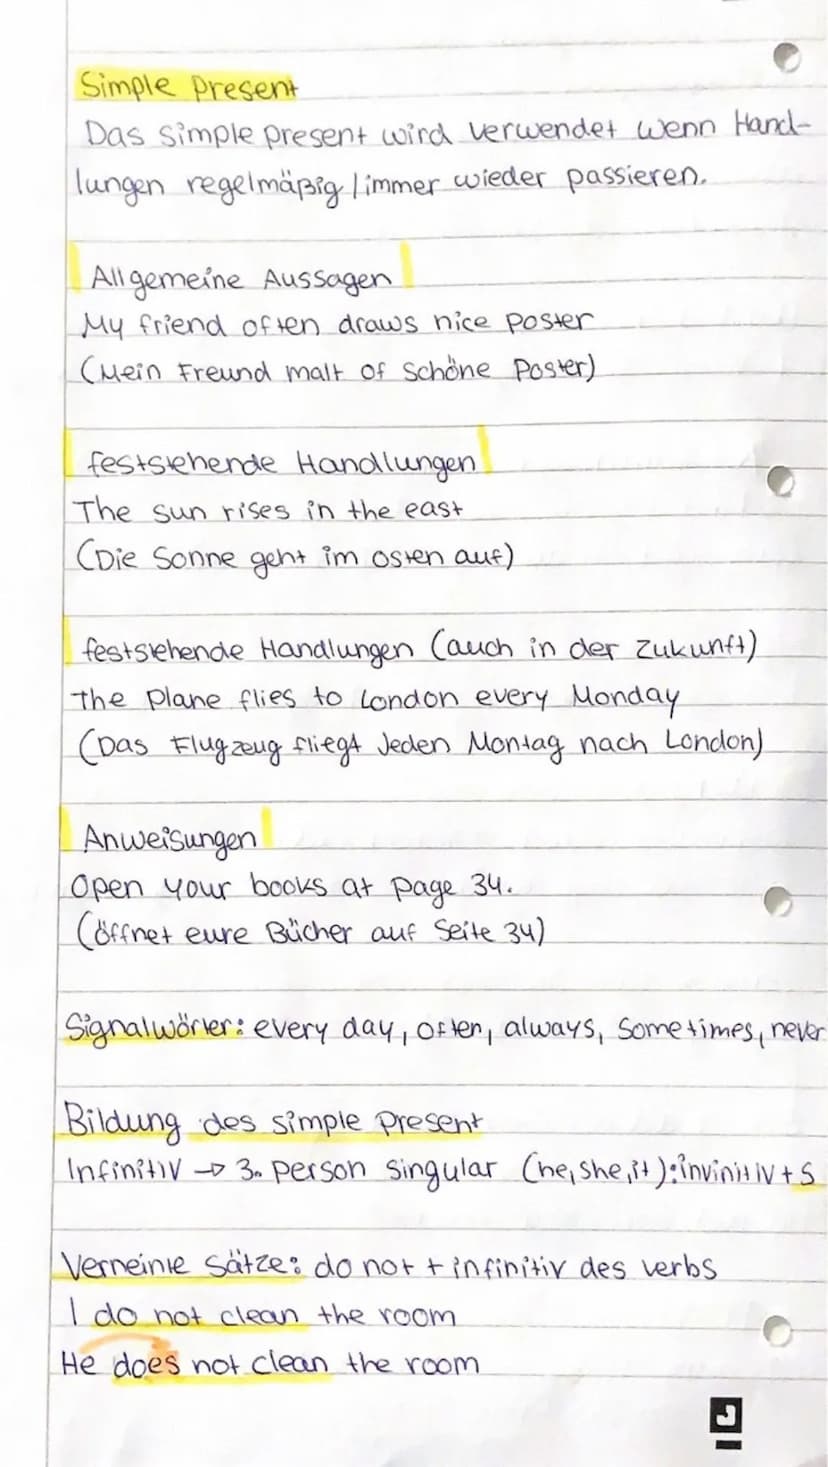 Simple present
Das simple present wird verwendet wenn Hand-
lungen regelmäßig / immer wieder passieren.
Allgemeine Aussagen
My friend often draws nice poster
(Mein Freund malt of schöne Poster)
feststehende Handlungen
The sun rises in the east
(Die Sonne geht im osten auf)
feststehende Handlungen (auch in der Zukunft)
The plane flies to London every Monday
(Das Flugzeug fliegt Jeden Montag nach London)
Anweisungen
Open your books at page 34.
(öffnet eure Bücher auf Seite 34)
Signalwörter: every day, often, always, sometimes, never
Bildung des simple present
Infinitiv → 3. person singular (he, she, it): invinitiv + s
Verneinte Sätze: do not + infinitiv des verbs
I do not clean the room
He does not clean the room